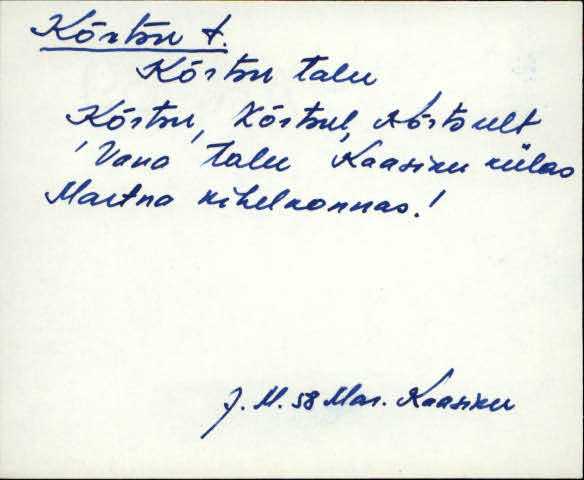 Kõrtsu t.
Kõrtsu talu
Kõrtsu, Kõrtsul, Kõrtsult
'Vana talu Kaasiku külas
Martna kihelkonnas.'
J. M. 58 Mar. Kaasiku